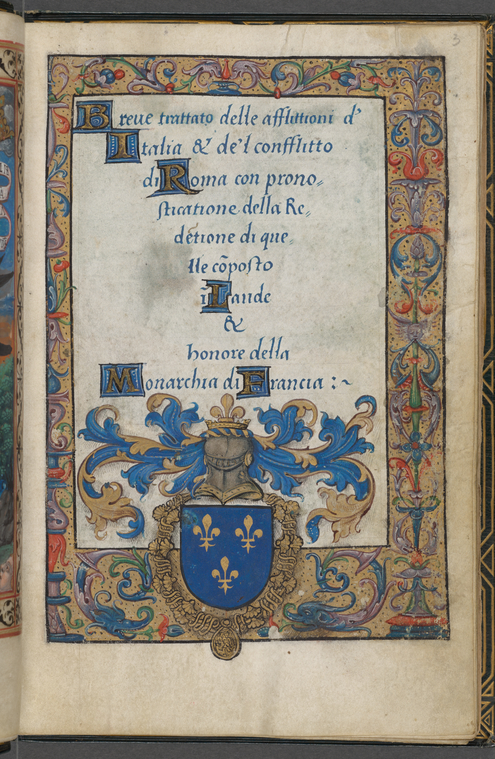 3
Breue trattato delle afflittioni d'
Italia & de'l confflitto
di Roma con prono=
sticatione della Re=
dētione di que=
lle cōposto
ī Laude
&
honore della
Monarchia di Francia :~